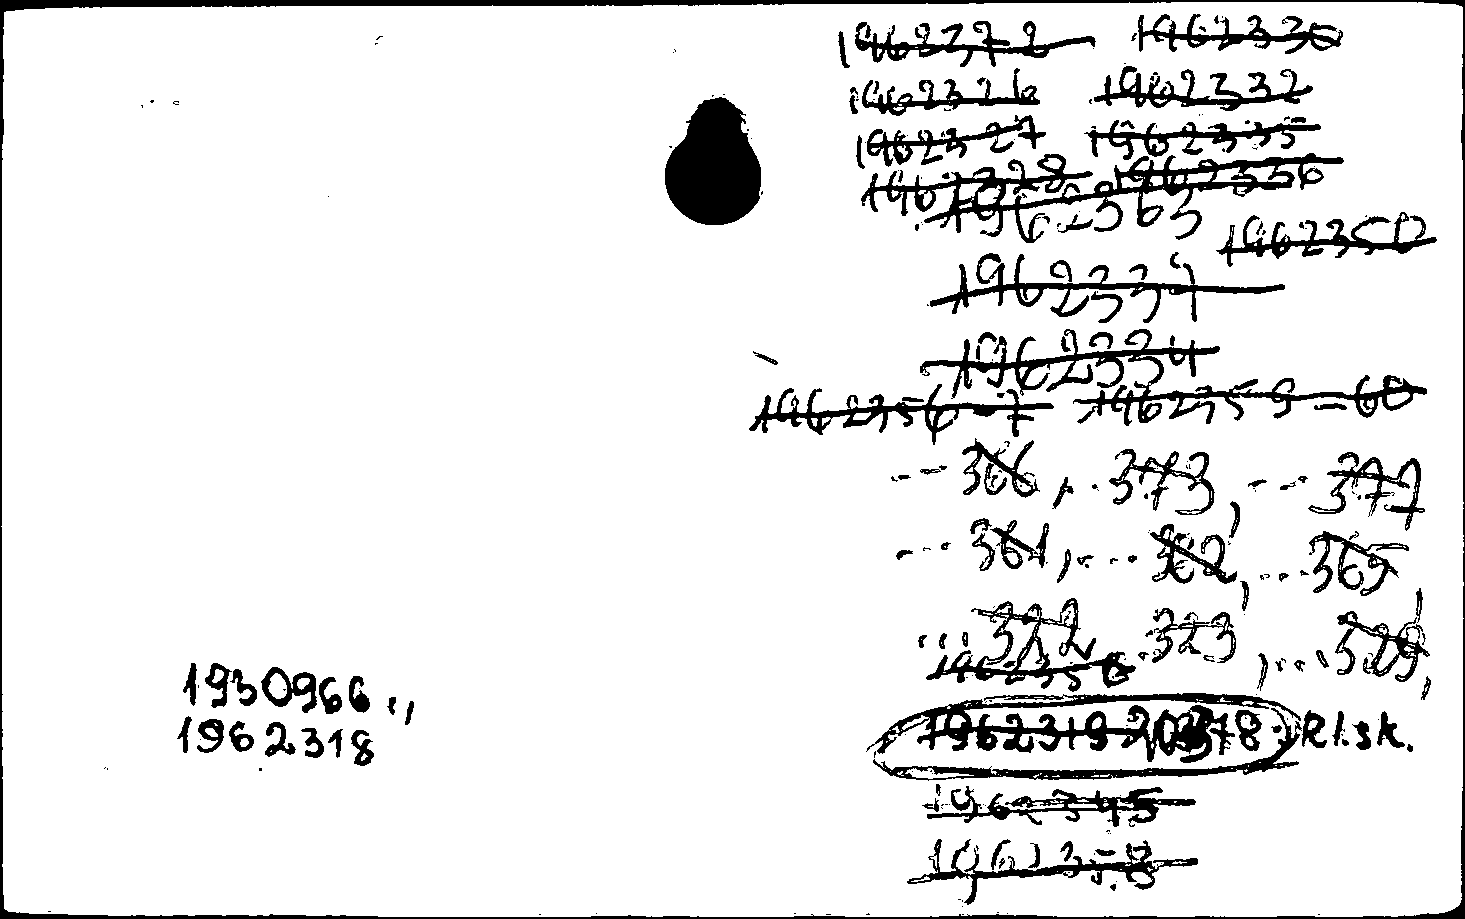 1962372 1962330
1962326 1962332
1962327 1962335
1962328 1962336
1962363
1962350
1962337
1962334
1962356-7 1962359-60
--- 366, .. 373, --- 377
--- 361, ... 362, ... 365,
... 322, .. 323, ... 329,
1962356
1930966 . ,
1962318
1962319 Kl.sk.
1962345